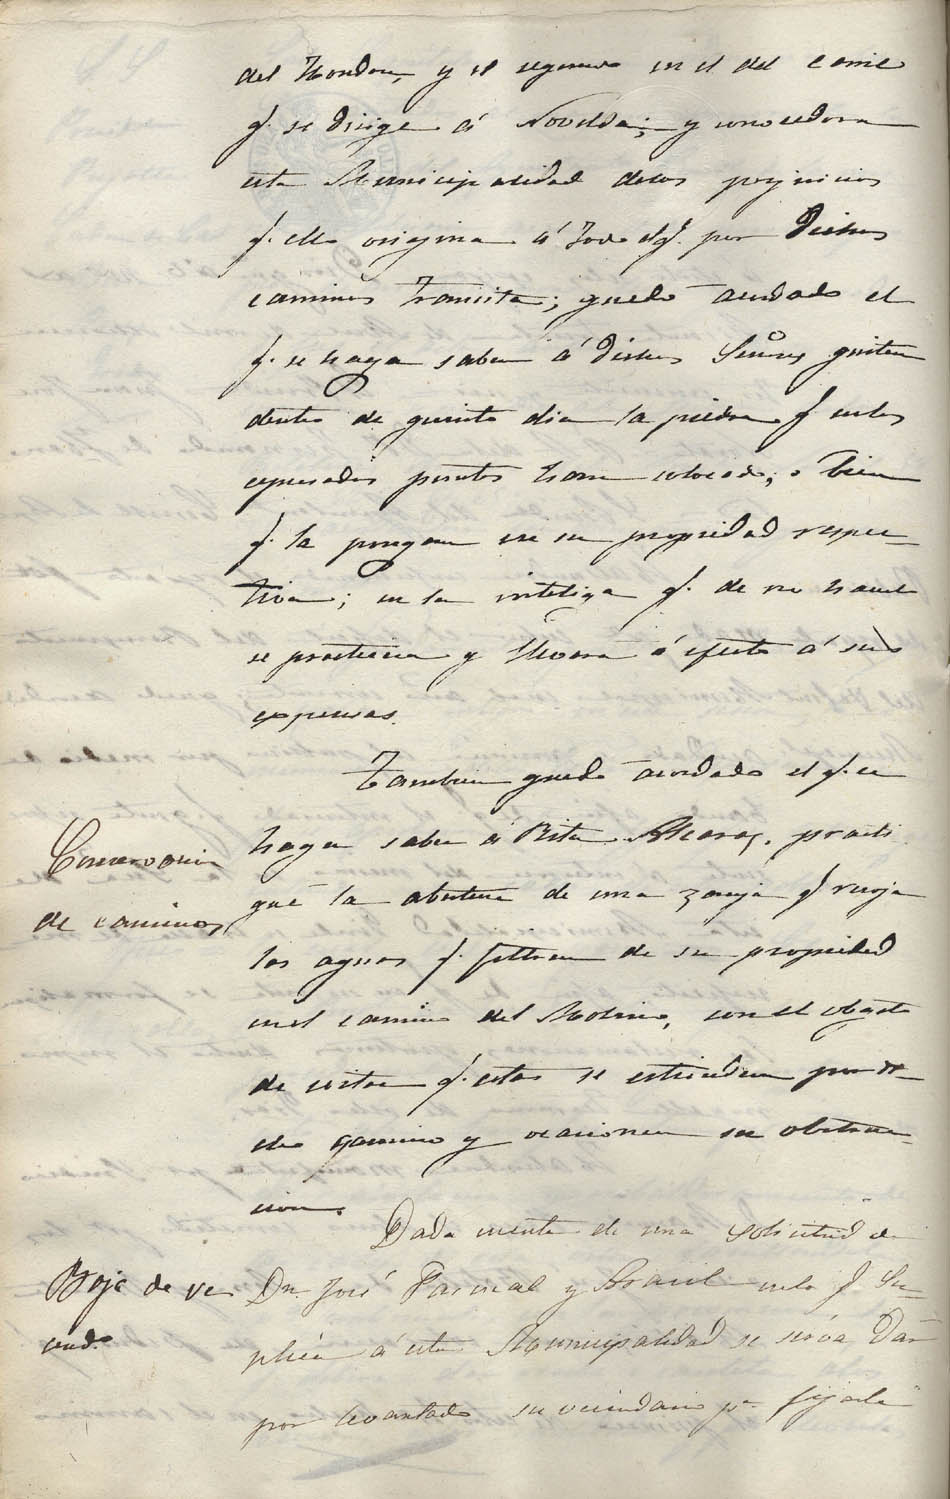 del Hondon, y el segundo en el del carril
q.e se dirige á Novelda; y conocedora
esta Municipalidad delos perjuicios
q.e ello origina á todo elq.e por dichos
caminos transita; quedó acordado el
q.e se haga saber á dichos Señores quiten
dentro de quinto dia la piedra q.e enlos
espresados puntos han colocado; o bien
q.e la pongan en su propiedad respec-
tiva; en la inteliga q.e de no hacerlo
se practicara y llevara á efecto á sus
expensas.
Tambien quedó acordado el q.e se
Conservacion
de caminos
haga saber á Rita Alcaraz, practi
que la abertura de una zanja q.e recoja
las aguas q.e filtran de su propiedad
enel camino del Molino, con el objeto
de evitar q.e estas se estiendan por di-
cho camino y ocasionen su obstruc-
cion.
Dada cuenta de una solicitud de
Baja de ve
cind.o
Dn. José Pascual y enla q.e Su-
plica á esta Municipalidad se sirva dar
por levantado su vecindario p.a fijarlo